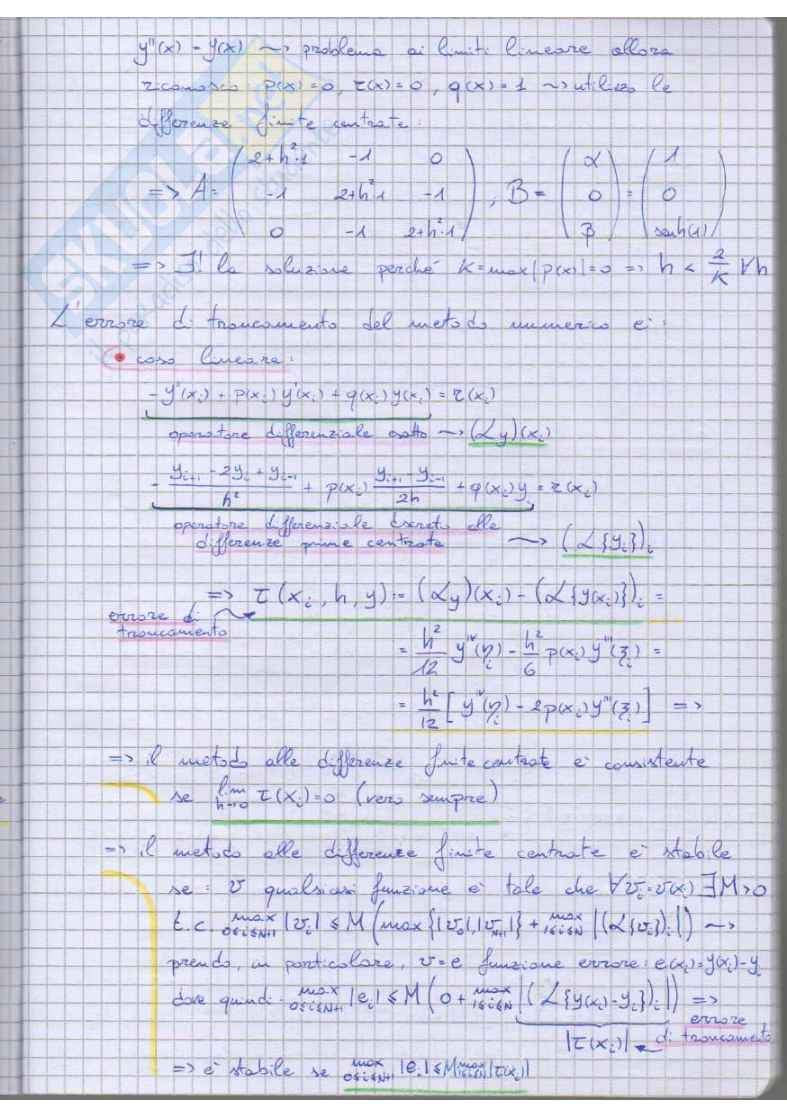 y''(x) = y(x) ~> problema ai limiti lineare allora
riconosco p(x)=0, r(x)=0, q(x)=1 ~> utilizzo le
differenze finite centrate:
=> A = ( 2+h²·1 -1 0 ; -1 2+h²·1 -1 ; 0 -1 2+h²·1 ) , B = ( α ; 0 ; β ) = ( 1 ; 0 ; senh(1) )
=> ∃! la soluzione perché K=max|p(x)|=0 => h < 2/K ∀h
L'errore di troncamento del metodo numerico è:
• caso lineare:
- y''(xᵢ) + p(xᵢ) y'(xᵢ) + q(xᵢ) y(xᵢ) = r(xᵢ)
operatore differenziale esatto ~> (Ly)(xᵢ)
- (yᵢ₊₁ - 2yᵢ + yᵢ₋₁)/h² + p(xᵢ) (yᵢ₊₁ - yᵢ₋₁)/2h + q(xᵢ)yᵢ = r(xᵢ)
operatore differenziale discreto alle
differenze prime centrate ~> (L{yᵢ})ᵢ
=> τ(xᵢ, h, y) := (Ly)(xᵢ) - (L{y(xᵢ)})ᵢ =
errore di
troncamento
= h²/12 yⁱᵛ(ηᵢ) - h²/6 p(xᵢ) y'''(ξᵢ) =
= h²/12 [ yⁱᵛ(ηᵢ) - 2p(xᵢ) y'''(ξᵢ) ] =>
=> il metodo alle differenze finite centrate è consistente
se lim h→0 τ(xᵢ)=0 (vero sempre)
=> il metodo alle differenze finite centrate è stabile
se: v qualsiasi funzione è tale che ∀vᵢ=v(xᵢ) ∃M>0
t.c. max 0≤i≤N+1 |vᵢ| ≤ M ( max{|v₀|,|v_N+1|} + max 1≤i≤N |(L{vᵢ})ᵢ| ) ~>
prendo, in particolare, v=e funzione errore: e(xᵢ)=y(xᵢ)-yᵢ
dove quindi: max 0≤i≤N+1 |eᵢ| ≤ M ( 0 + max 1≤i≤N |(L{y(xᵢ)-yᵢ})ᵢ| ) =>
|τ(xᵢ)| errore
di troncamento
=> è stabile se max 0≤i≤N+1 |eᵢ| ≤ M max 1≤i≤N |τ(xᵢ)|
SKUOLA.net